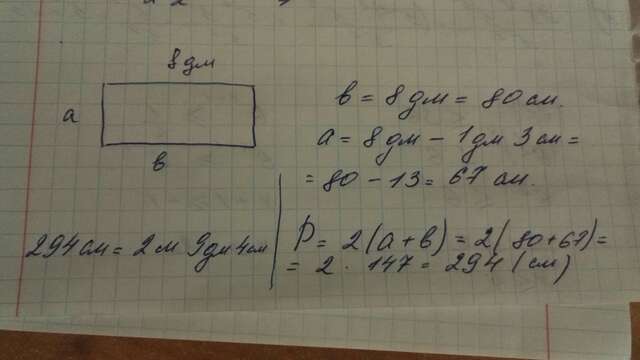 8 дм
а
в
в = 8 дм = 80 см.
а = 8 дм – 1 дм 3 см =
= 80 – 13 = 67 см.
294 см = 2 см 9 дм 4 см
P = 2(а + в) = 2(80 + 67) =
= 2 · 147 = 294 (см)